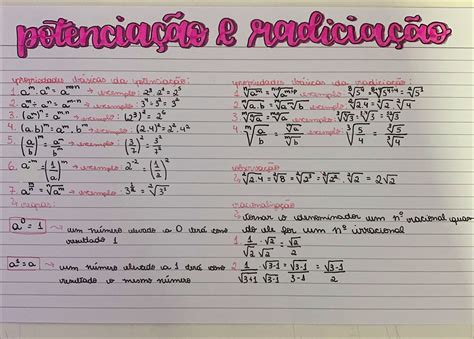 potenciação e radiciação
propriedades básicas da potenciação:
1. aᵐ. aⁿ = aᵐ⁺ⁿ → exemplo: 2³. 2² = 2⁵
2. aᵐ ÷ aⁿ = aᵐ⁻ⁿ → exemplo:
3. (aᵐ)ⁿ = aᵐ·ⁿ → exemplo: (2³)² = 2⁶
4. (a.b)ᵐ = aᵐ. bᵐ → exemplo: (2.4)² = 2². 4²
5. → exemplo:
6. a⁻ᵐ = (1/a)ᵐ → exemplo: 2⁻² = (1/2)²
7. → exemplo:
↳ regras:
a⁰ = 1 → um número elevado a 0 terá como
resultado 1
a¹ = a → um número elevado a 1 terá como
resultado o mesmo número
propriedades básicas da radiciação:
1. → exemplo:
2. ⁿ√a.b = ⁿ√a ⁿ√b → exemplo: ²√2.4 = ²√2 . ²√4
3. → exemplo:
4. ⁿ√(a/b) = ⁿ√a/ⁿ√b → exemplo:
observação
↳ ²√2.4 = ²√8 = ²√2³ = ²√2² . ²√2 = 2√2
racionalização
↳ tornar o denominador um nº racional quan
do ele for um nº irracional
1. 1/√2 . √2/√2 = √2/2
2. 1/√3+1 . √3-1/√3-1 = √3-1/3-1 = √3-1/2